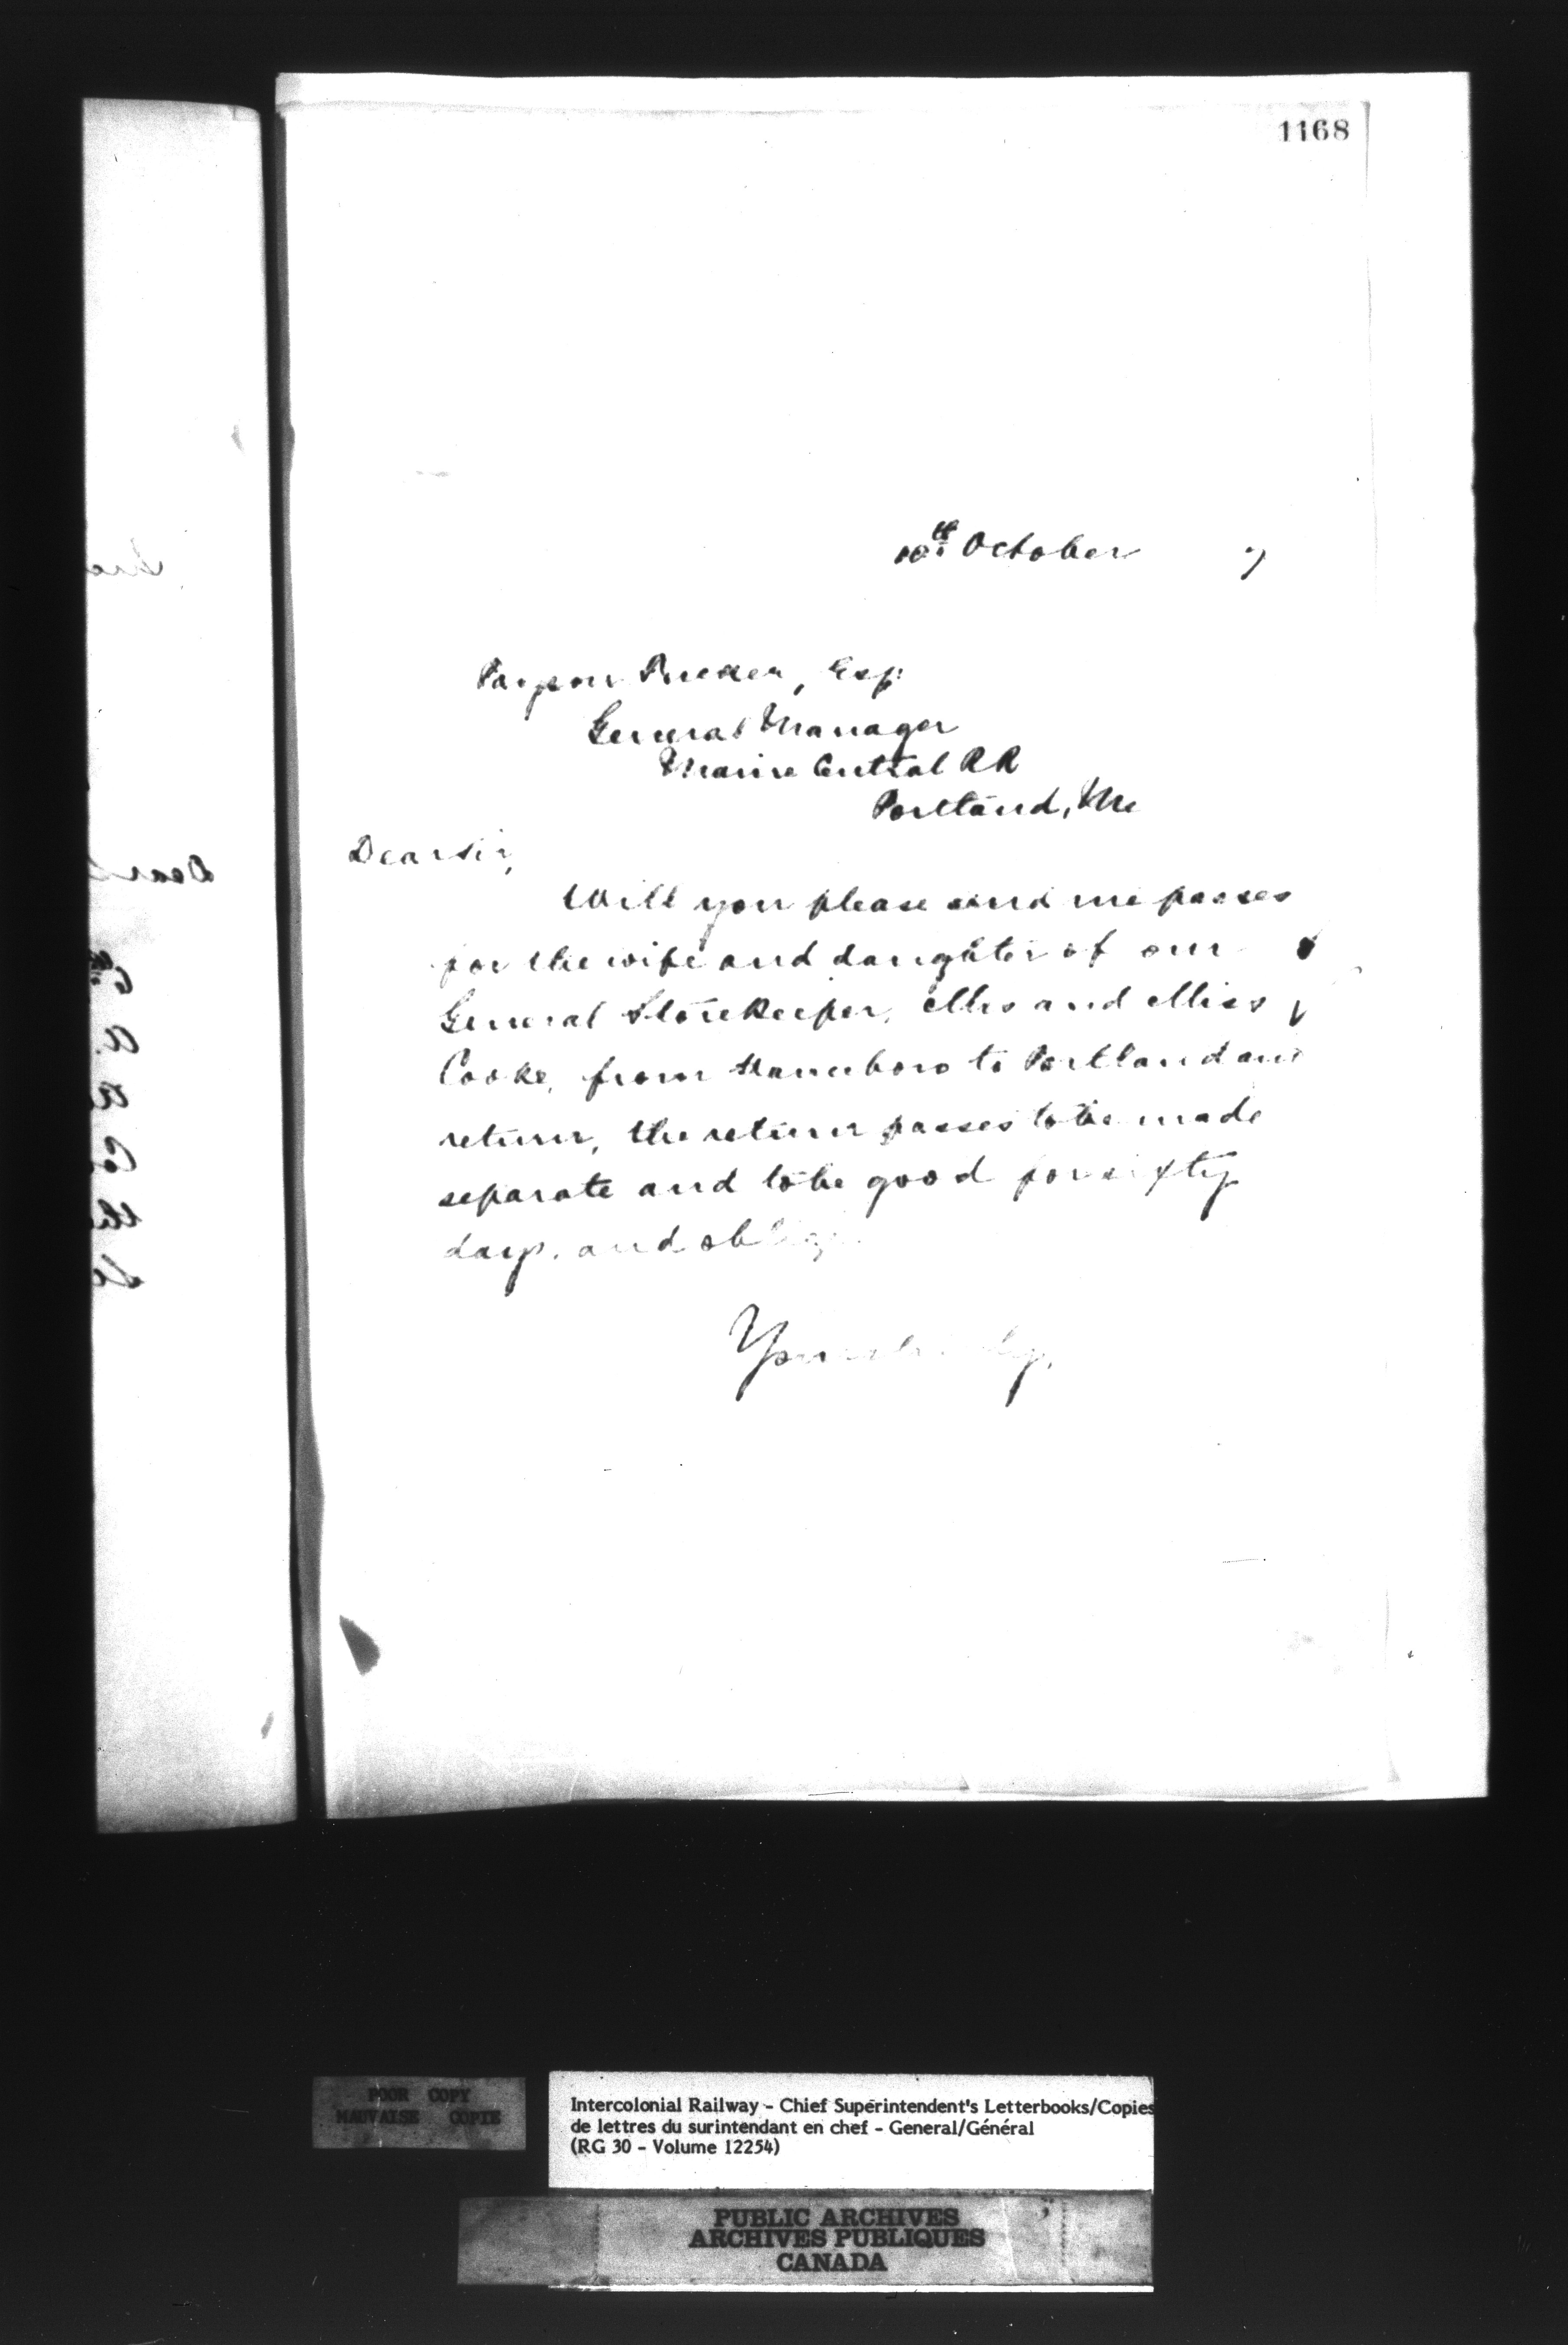 1168
10th October 7
Payson Tucker, Esq.
General Manager
Maine Central RR
Portland, Me
Dear Sir,
Will you please send me passes
for the wife and daughter of our
General Storekeeper, Mrs and Miss
Cooke, from Vanceboro to Portland and
return, the return passes to be made
separate and to be good for sixty
days, and oblige
Yours truly,
POOR COPY
MAUVAISE COPIE
Intercolonial Railway - Chief Superintendent's Letterbooks/Copies
de lettres du surintendant en chef - General/Général
(RG 30 - Volume 12254)
PUBLIC ARCHIVES
ARCHIVES PUBLIQUES
CANADA